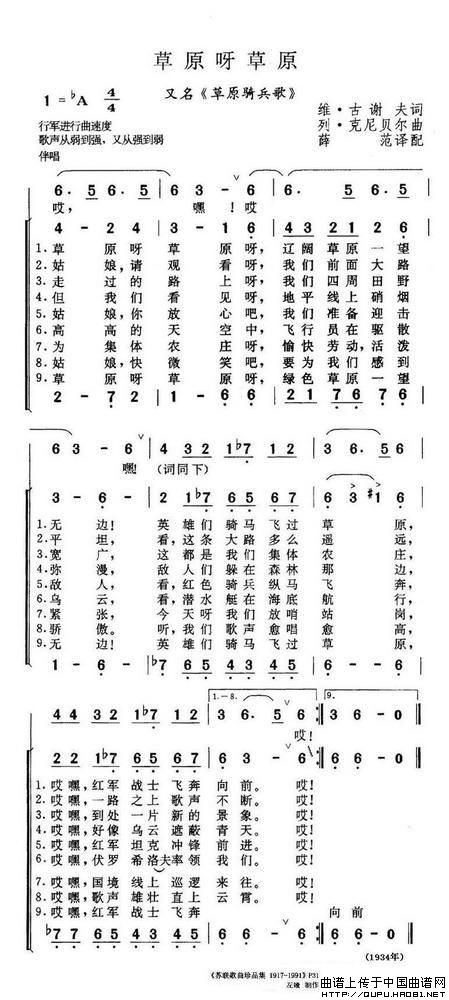 草原呀草原
又名《草原骑兵歌》
1=♭A 4/4
维·古谢夫词
列·克尼贝尔曲
薛 范译配
行军进行曲速度
歌声从弱到强，又从强到弱
伴唱
6. 5 6 5 6 3 - 6 6. 5 6 5
哎， 嘿！哎
4 - 2 4 3 - 1 6 4 3 2 1 2 6
1.草 原呀 草 原呀，辽阔 草原 一望
2.姑 娘，请 观 看呀，我们 前面 大路
3.走 过的 路 上呀，我们 四周 田野
4.但 我们 看 见呀，地平 线上 硝烟
5.姑 娘，你 放 心吧，我们 准备 迎击
6.高 高的 天 空中，飞行 员在 驱散
7.为 集体 农 庄呀，愉快 劳动，活泼
8.姑 娘，快 微 笑吧，要为 我们 感到
9.草 原呀 草 原呀，绿色 草原 一望
2 - 7 2 1 - 6 6 2 1 7 6 7 6
6 3 - 6 4 3 2 1 ♭7 1 2 3 6. 5 6
嘿！（词同下）
3 - 6 - 2 1 ♭7 6 5 6 7 6 3 ♯1 6
1.无 边！ 英雄 们 骑马 飞过 草 原，
2.平 坦， 看，这条 大路 多么 遥 远，
3.宽 广， 这都 是我 们 集体 农 庄，
4.弥 漫， 敌人 们 躲在 森林 那 边，
5.敌 人， 看，红色 骑兵 纵马 飞 奔，
6.乌 云， 看，潜水 艇在 海底 航 行，
7.紧 张， 今天 呀我 们放 哨站 岗，
8.骄 傲。 听，我们 歌声 愈唱 愈 高，
9.无 边！ 英雄 们 骑马 飞过 草 原，
1 - 6 - ♭7 6 5 4 3 4 5 6 - 6
1.-8. 9.
4 4 3 2 1 ♭7 1 2 3 6. 5 6 6 6 - 0
哎！
2 2 1 ♭7 6 5 6 7 6 3 - 6 6 6 - 0
1.哎 嘿，红军 战士 飞奔 向前。 哎！
2.哎 嘿，一路 之上 歌声 不断。 哎！
3.哎 嘿，到处 一片 新的 景象。 哎！
4.哎 嘿，好像 乌云 遮蔽 青天。 哎！
5.哎 嘿，红军 坦克 冲锋 前进。 哎！
6.哎 嘿，伏罗 希洛夫率领 我们。 哎！
7.哎 嘿，国境 线上 巡逻 来往。 哎！
8.哎 嘿，歌声 雄壮 直上 云霄。 哎！
9.哎 嘿，红军 战士 飞奔 向 前
♭7 7 6 5 4 3 4 5 6 - 6 6 6 - 0
（1934年）
《苏联歌曲珍品集 1917-1991》P31
制作
曲谱上传于中国曲谱网
http://QUPU.HAO81.NET